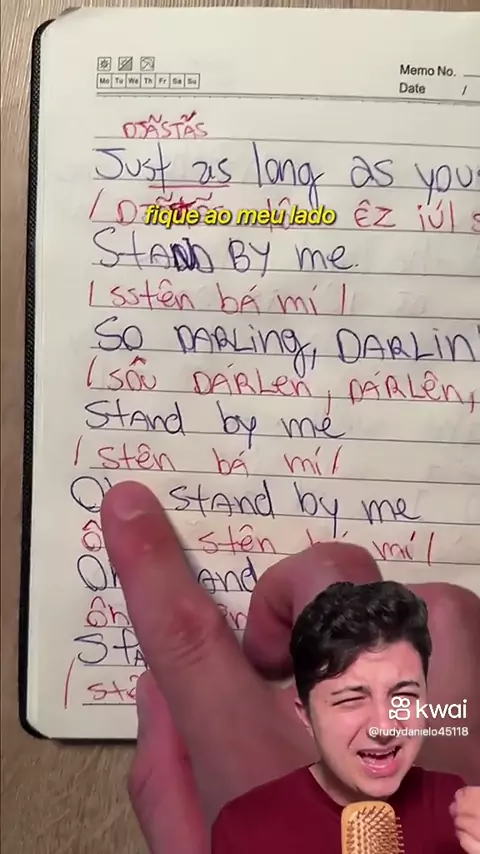 Mo Tu We Th Fr Sa Su
Memo No.
Date /
DJÃSTÃS
Just as long as you
fique ao meu lado
ÊZ iúl s
STAND BY me.
/ sstên bá mí /
SO DARLING, DARLIN'
/ sôu DÁRLEN, DÁRLÊN,
STAnd by me
/ stên bá mí /
STAnd by me
stên mí /
Oh and
ôh
STA
/ stê
kwai
@rudydanielo45118